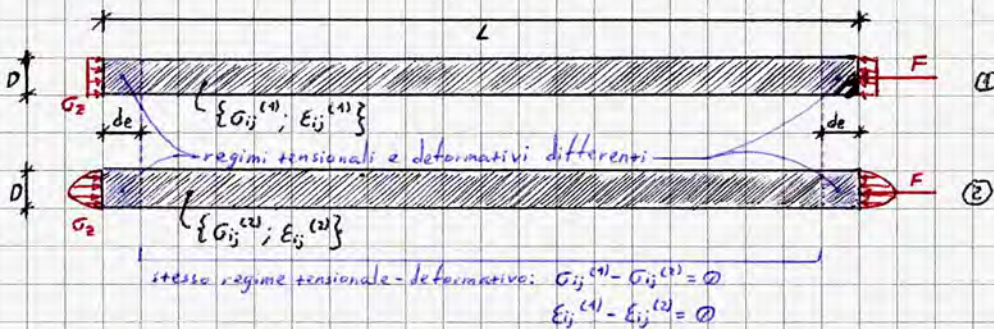 L
D
F
①
σz
{σij⁽¹⁾; εij⁽¹⁾}
de
de
regimi tensionali e deformativi differenti
D
F
②
σz
{σij⁽²⁾; εij⁽²⁾}
stesso regime tensionale-deformativo: σij⁽¹⁾ - σij⁽²⁾ = ∅
εij⁽¹⁾ - εij⁽²⁾ = ∅